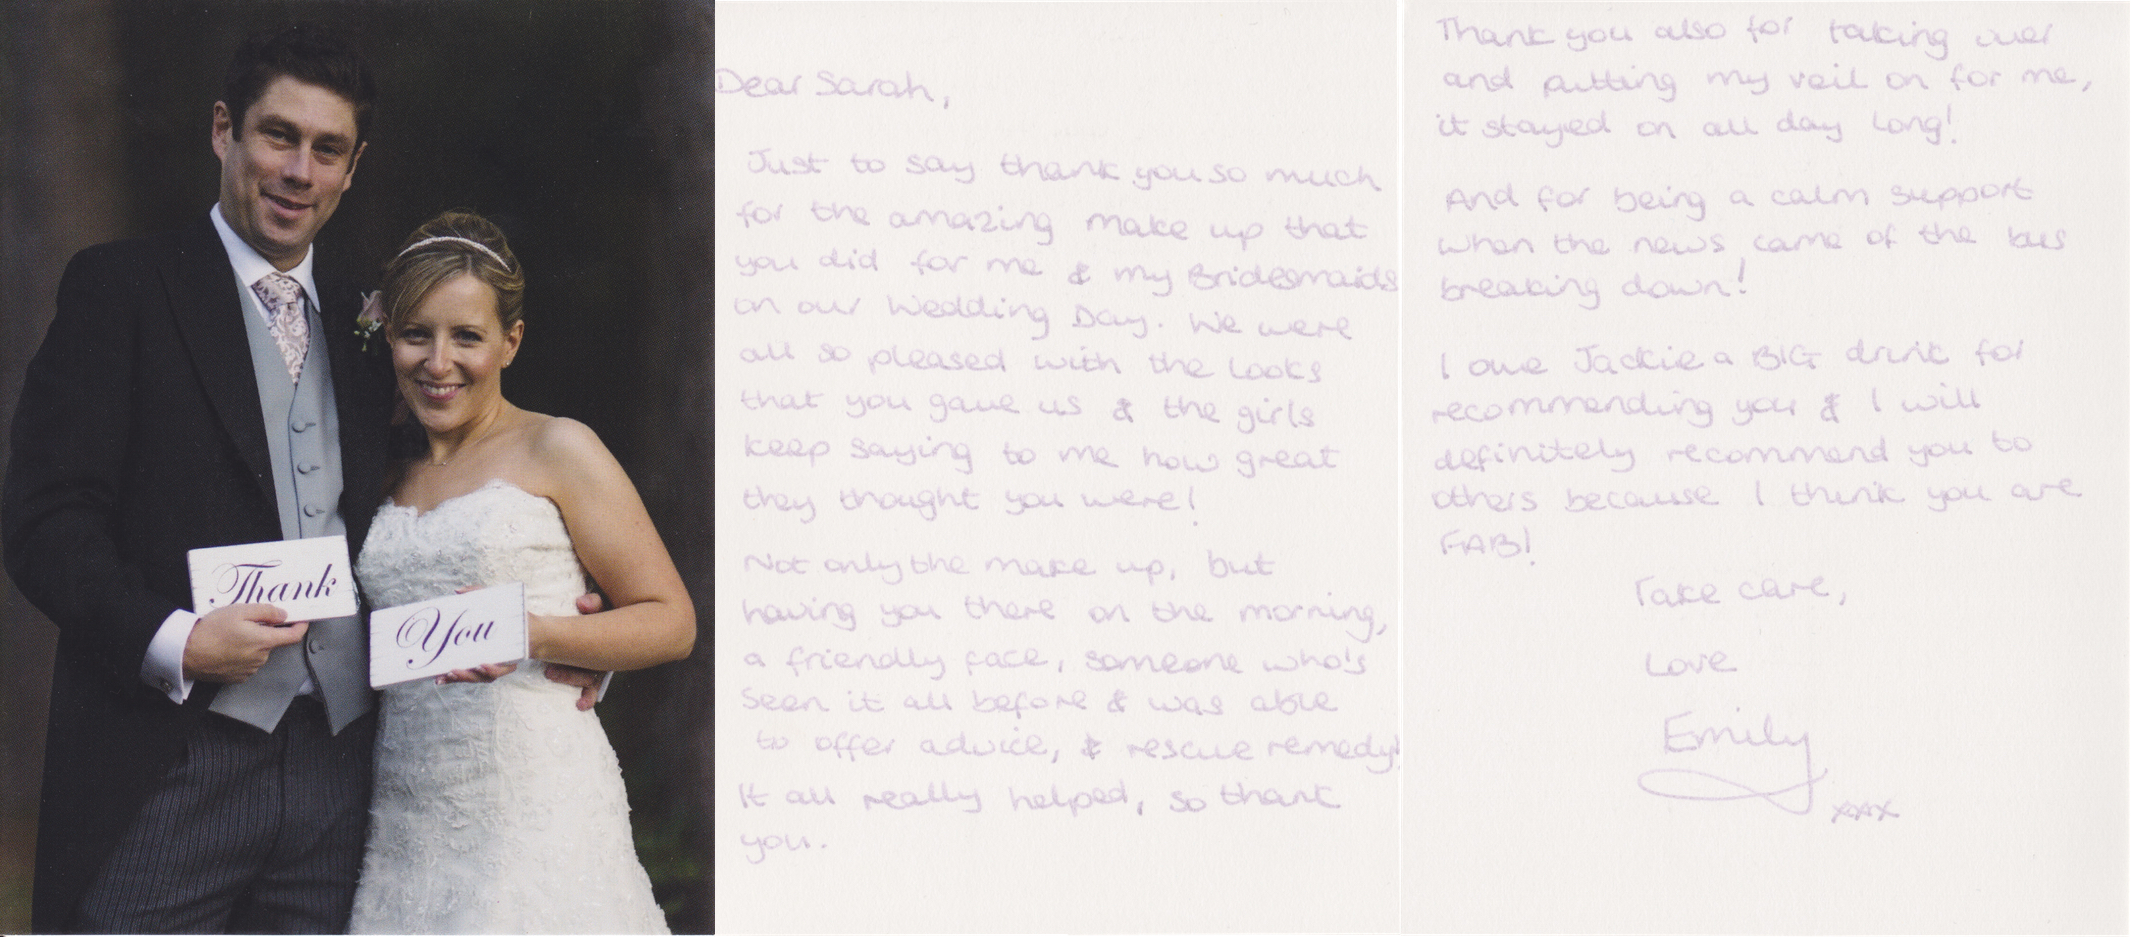 Thank
You
Dear Sarah,
Just to say thank you so much
for the amazing make up that
you did for me & my Bridesmaids
on our Wedding Day. We were
all so pleased with the looks
that you gave us & the girls
keep saying to me how great
they thought you were!
Not only the make up, but
having you there on the morning,
a friendly face, someone who's
seen it all before & was able
to offer advice, & rescue remedy!
It all really helped, so thank
you.
Thank you also for taking over
and putting my veil on for me,
it stayed on all day long!
And for being a calm support
when the news came of the bus
breaking down!
I owe Jackie a BIG drink for
recommending you & I will
definitely recommend you to
others because I think you are
FAB!
Take care,
Love
Emily
xxx